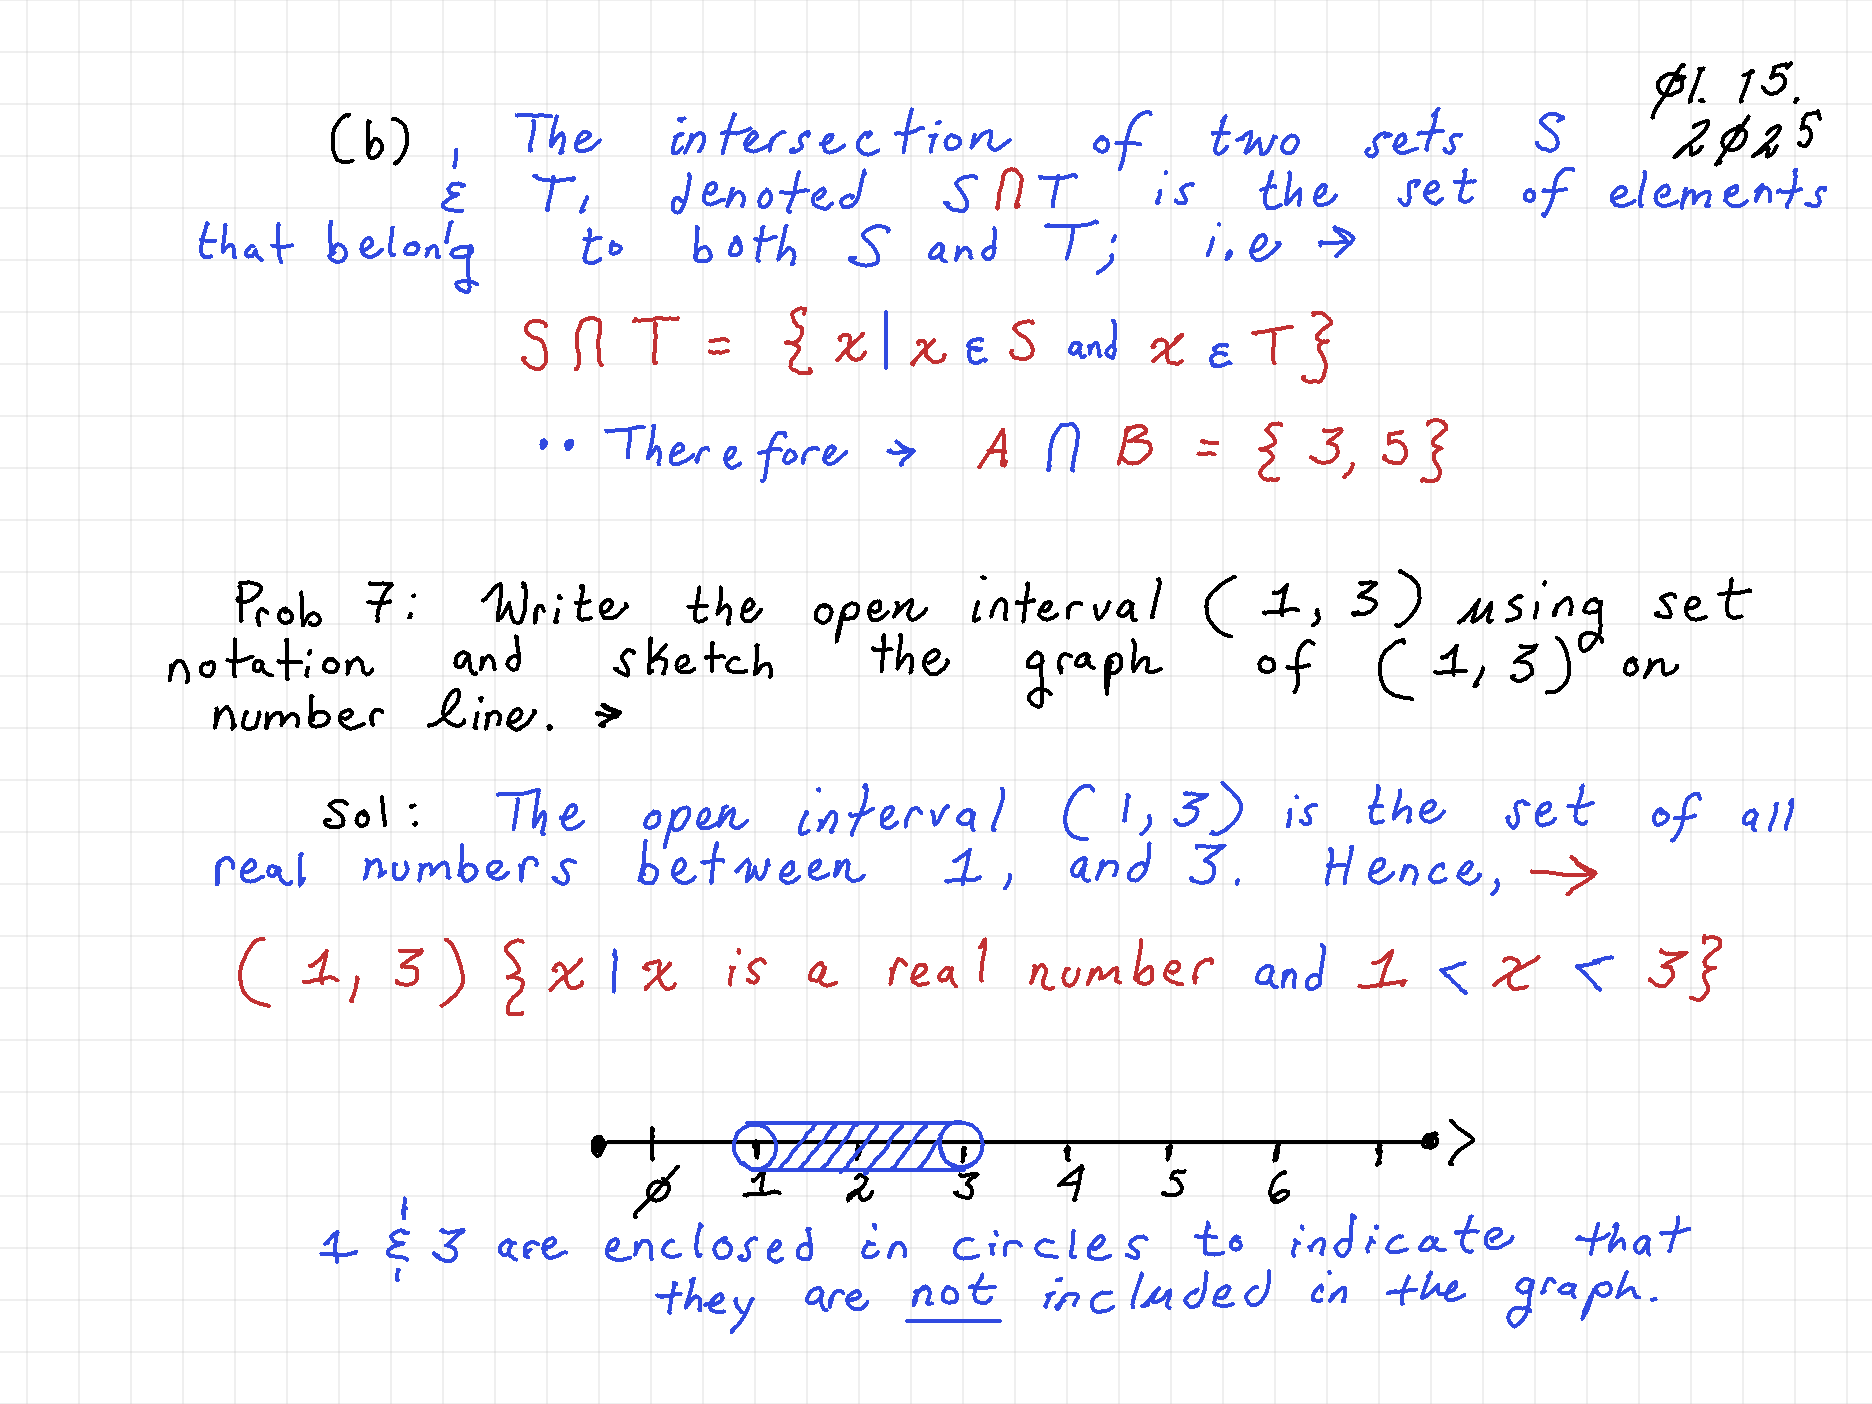 Ø1. 15.
2Ø25
(b) The intersection of two sets S
& T, denoted S∩T is the set of elements
that belong to both S and T; i.e →
S ∩ T = {x | x ε S and x ε T}
·· Therefore → A ∩ B = {3, 5}
Prob 7: Write the open interval (1, 3) using set
notation and sketch the graph of (1, 3) on
number line. →
Sol: The open interval (1, 3) is the set of all
real numbers between 1, and 3. Hence, →
(1, 3) {x | x is a real number and 1 < x < 3}
Ø 1 2 3 4 5 6
1 & 3 are enclosed in circles to indicate that
they are not included in the graph.